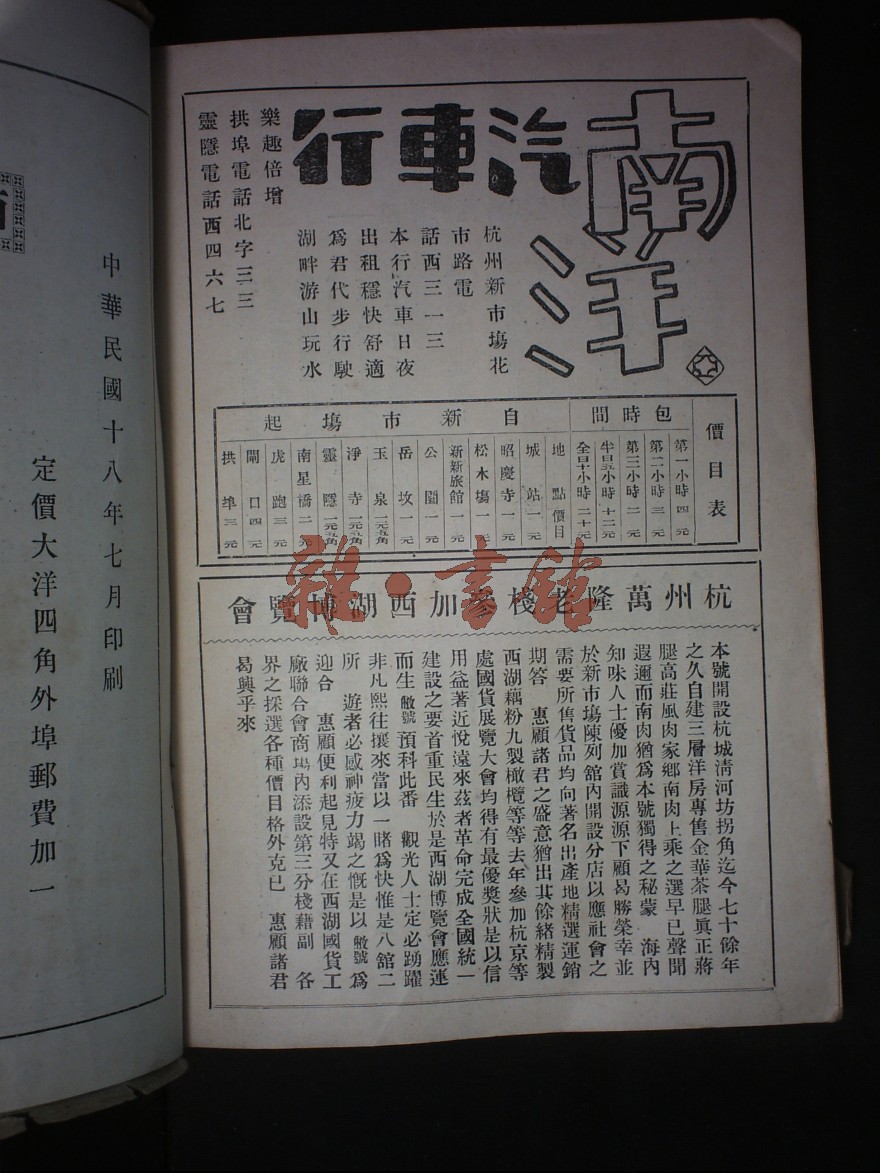 南洋汽車行
杭州新市場花
市路電
話西三一三
本行汽車日夜
出租穩快舒適
爲君代步行駛
湖畔游山玩水
樂趣倍增
拱埠電話北字三三
靈隱電話西四六七
價目表
包時間
第一小時 四元
第二小時 三元
第三小時 二元
半日五小時 十二元
全日十小時 二十元
自新市場起
地點 價目
城站 一元
昭慶寺 一元
松木場 一元
新新旅館 一元
公園 一元
岳坟 一元
玉泉 一元五角
淨寺 一元五角
靈隱 一元五角
南星橋 二元
虎跑 三元
閘口 四元
拱埠 三元
杭州萬隆老棧參加西湖博覽會
本號開設杭城淸河坊拐角迄今七十餘年
之久自建三層洋房專售金華茶腿眞正蔣
腿高莊風肉家鄉南肉上乘之選早已聲聞
遐邇而南肉猶爲本號獨得之秘蒙 海內
知味人士優加賞識源源下顧曷勝榮幸並
於新市場陳列舘內開設分店以應社會之
需要所售貨品均向著名出產地精選運銷
期答 惠顧諸君之盛意猶出其餘緒精製
西湖藕粉九製橄欖等等去年參加杭京等
處國貨展覽大會均得有最優獎狀是以信
用益著近悅遠來茲者革命完成全國統一
建設之要首重民生於是西湖博覽會應運
而生敝號預科此番 觀光人士定必踴躍
非凡熙往攘來當以一睹爲快惟是八舘二
所 遊者必感神疲力竭之慨是以敝號爲
迎合 惠顧便利起見特又在西湖國貨工
廠聯合會商場內添設第三分棧藉副 各
界之採選各種價目格外克己 惠顧諸君
曷興乎來
中華民國十八年七月印刷
定價大洋四角外埠郵費加一
雜·書館